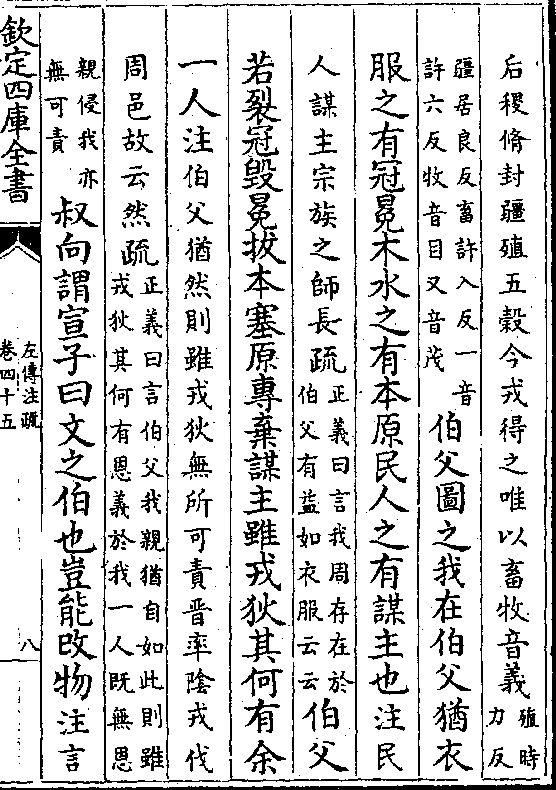 后稷脩封疆殖五穀今戎得之唯以畜牧音義殖時
力反
疆居良反畜許入反一音
許六反牧音目又音茂伯父圖之我在伯父猶衣
服之有冠冕木水之有本原民人之有謀主也注民
人謀主宗族之師長疏正義曰言我周存在於
伯父有益如衣服云云伯父
若裂冠毀冕拔本塞原專棄謀主雖戎狄其何有余
一人注伯父猶然則雖戎狄無所可責晋率陰戎伐
周邑故云然疏正義曰言伯父我親猶自如此則雖
戎狄其何有恩義於我一人既無恩
親侵我亦
無可責叔向謂宣子曰文之伯也豈能改物注言
欽定四庫全書
左傳注疏
卷四十五
八